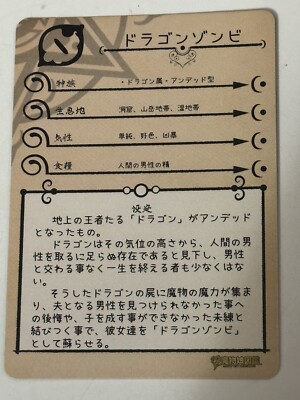 ドラゴンゾンビ
種族 ・ドラゴン属・アンデッド型
生息地 洞窟、山岳地帯、湿地帯
気性 単純、好色、凶暴
食糧 人間の男性の精
地上の王者たる「ドラゴン」がアンデッド
となったもの。
ドラゴンはその気位の高さから、人間の男
性を取るに足らぬ存在であると見下し、男性
と交わる事なく一生を終える者も少なくはな
い。
そうしたドラゴンの屍に魔物の魔力が集ま
り、夫となる男性を見つけられなかった事へ
の後悔や、子を成す事ができなかった未練と
結びつく事で、彼女達を「ドラゴンゾンビ」
として蘇らせる。